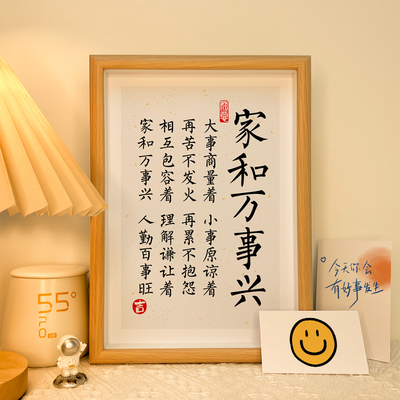 家和万事兴
大事商量着 小事原谅着
再苦不发火 再累不抱怨
相互包容着 理解谦让着
家和万事兴 人勤百事旺
吉
55°
今天你会
有好事发生